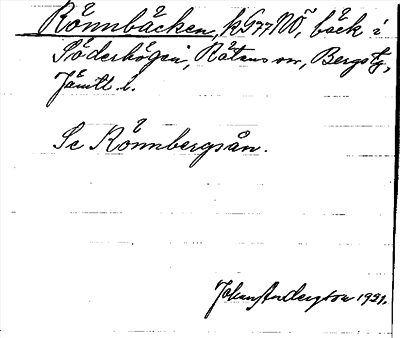 Rönnbäcken, kG77NÖ, bäck i
Söderhögen, Rätans sn, Bergs tg,
Jämtl. l.
Se Rönnbergsån.
Johan Andersson 1931.